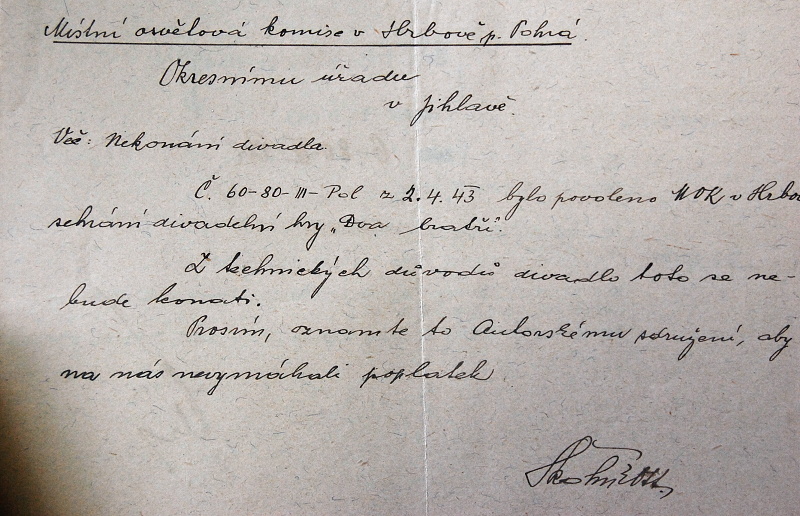 Místní osvětová komise v Hrbově p. Pohrá.
Okresnímu úřadu
v Jihlavě.
Věc: Nekonání divadla.
Č. 60-80-III-Pol z 2. 4. 43 bylo povoleno MOK v Hrbo
sehrání divadelní hry „Dva bratři".
Z technických důvodů divadlo toto se ne-
bude konati.
Prosím, oznamte to Autorskému sdružení, aby
na nás nevymáhali poplatek